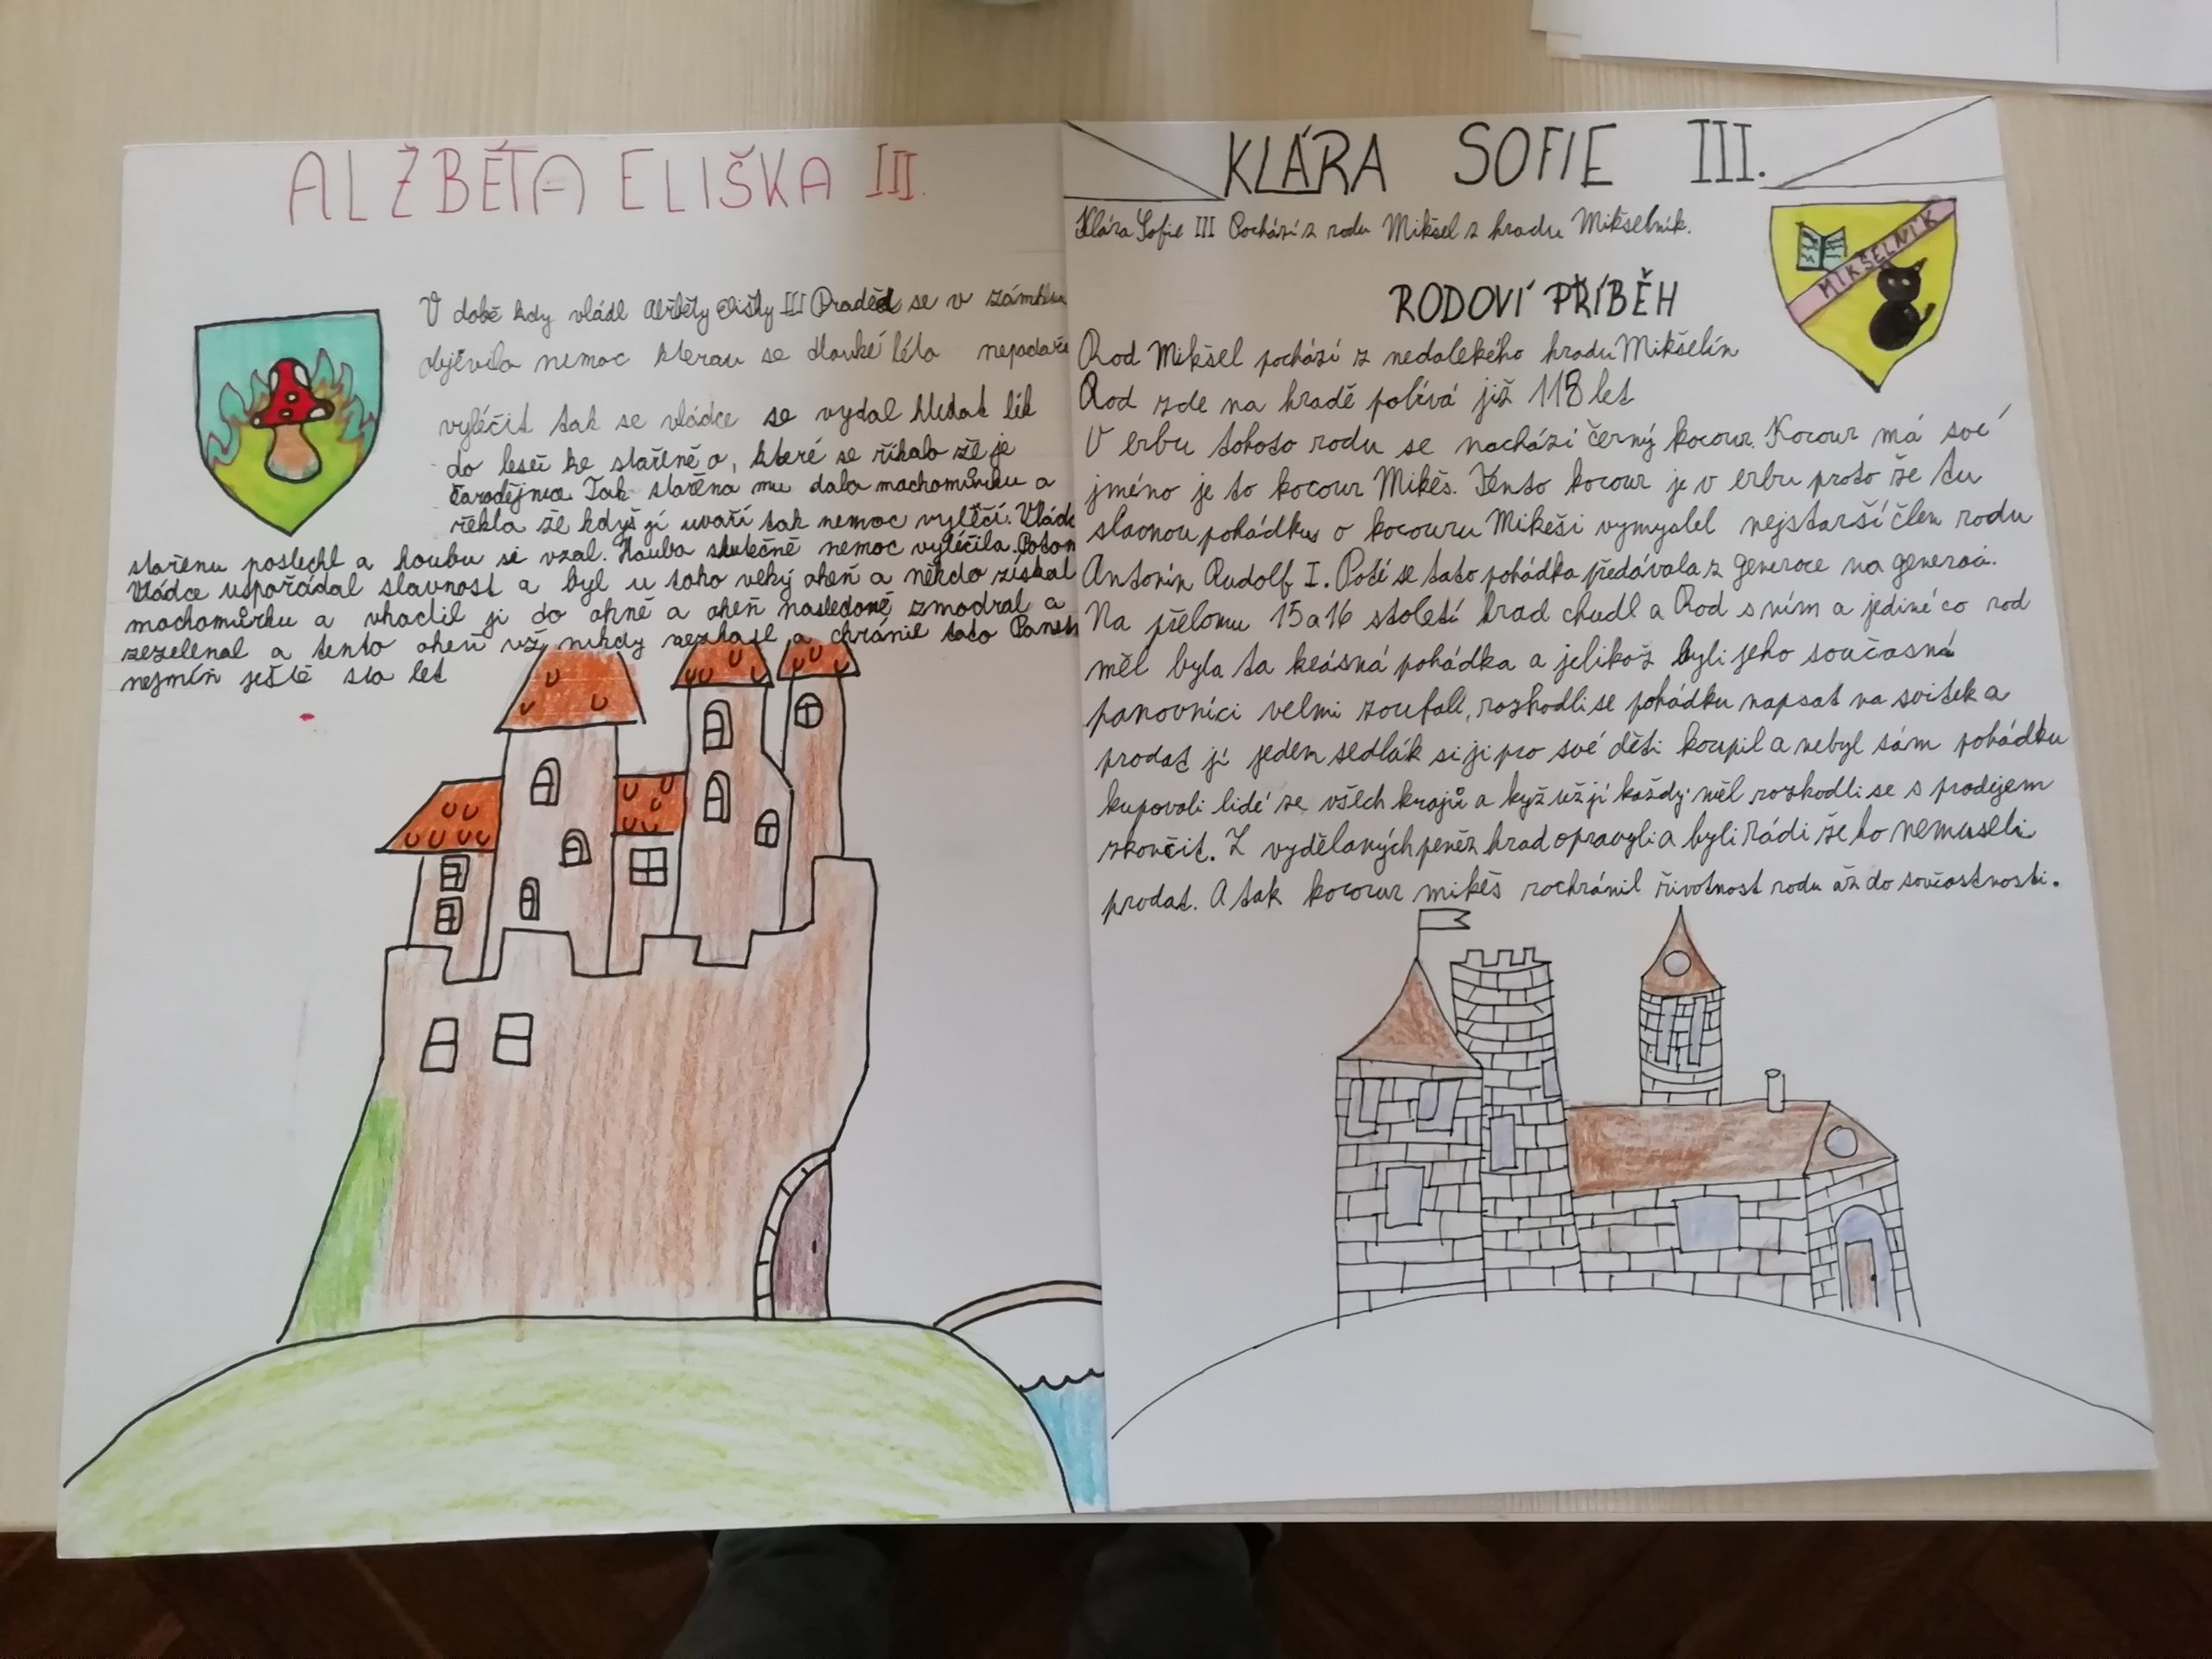 ALŽBĚTA ELIŠKA III.
V době kdy vládl Alžběty Elišky III Praděd se v zámku
objevila nemoc kterou se dlouhé léta nepodaři
vyléčit tak se vládce se vydal hledat lék
do lesů ke stařeně o, které se říkalo že je
čarodějnice. Tak stařena mu dala mochomůrku a
řekla že když jí uvaří tak nemoc vyléčí. Vládc
stařenu poslechl a houbu si vzal. Houba skutečně nemoc vyléčila. Potom
Vládce uspořádal slavnost a byl u toho veký oheň a někdo získal
mochomůrku a vhodil ji do ohně a oheň nasledoně zmodral a
zezelenal a tento oheň už nikdy nezhasl a chránil toto Panstv
nejmíň ještě sto let
KLÁRA SOFIE III.
Klára Sofie III Pochází z rodu Mikšel z hradu Mikšelník.
MIKŠELNÍK
RODOVÍ PŘÍBĚH
Rod Mikšel pochází z nedalekého hradu Mikšelín
Rod zde na hradě pobívá již 118 let
V erbu tohoto rodu se nachází černý kocour. Kocour má své
jméno je to kocour Mikeš. Tento kocour je v erbu proto že tu
slavnou pohádku o kocouru Mikeši vymyslel nejstarší člen rodu
Antonín Rudolf I. Poté se tato pohádka předávala z generace na generaci.
Na přelomu 15 a 16 století hrad chudl a Rod s ním a jediné co rod
měl byla ta krásná pohádka a jelikož byli jeho současná
panovníci velmi zoufalí, rozhodli se pohádku napsat na svitek a
prodat jí jeden sedlák si ji pro své děti koupil a nebyl sám pohádku
kupovali lidé ze všech krajů a kyž už jí každý měl rozhodli se s prodejem
skončit. Z vydělaných peněz hrad opravyli a byli rádi že ho nemuseli
prodat. A tak kocour mikeš zochránil životnost rodu až do součastnosti.